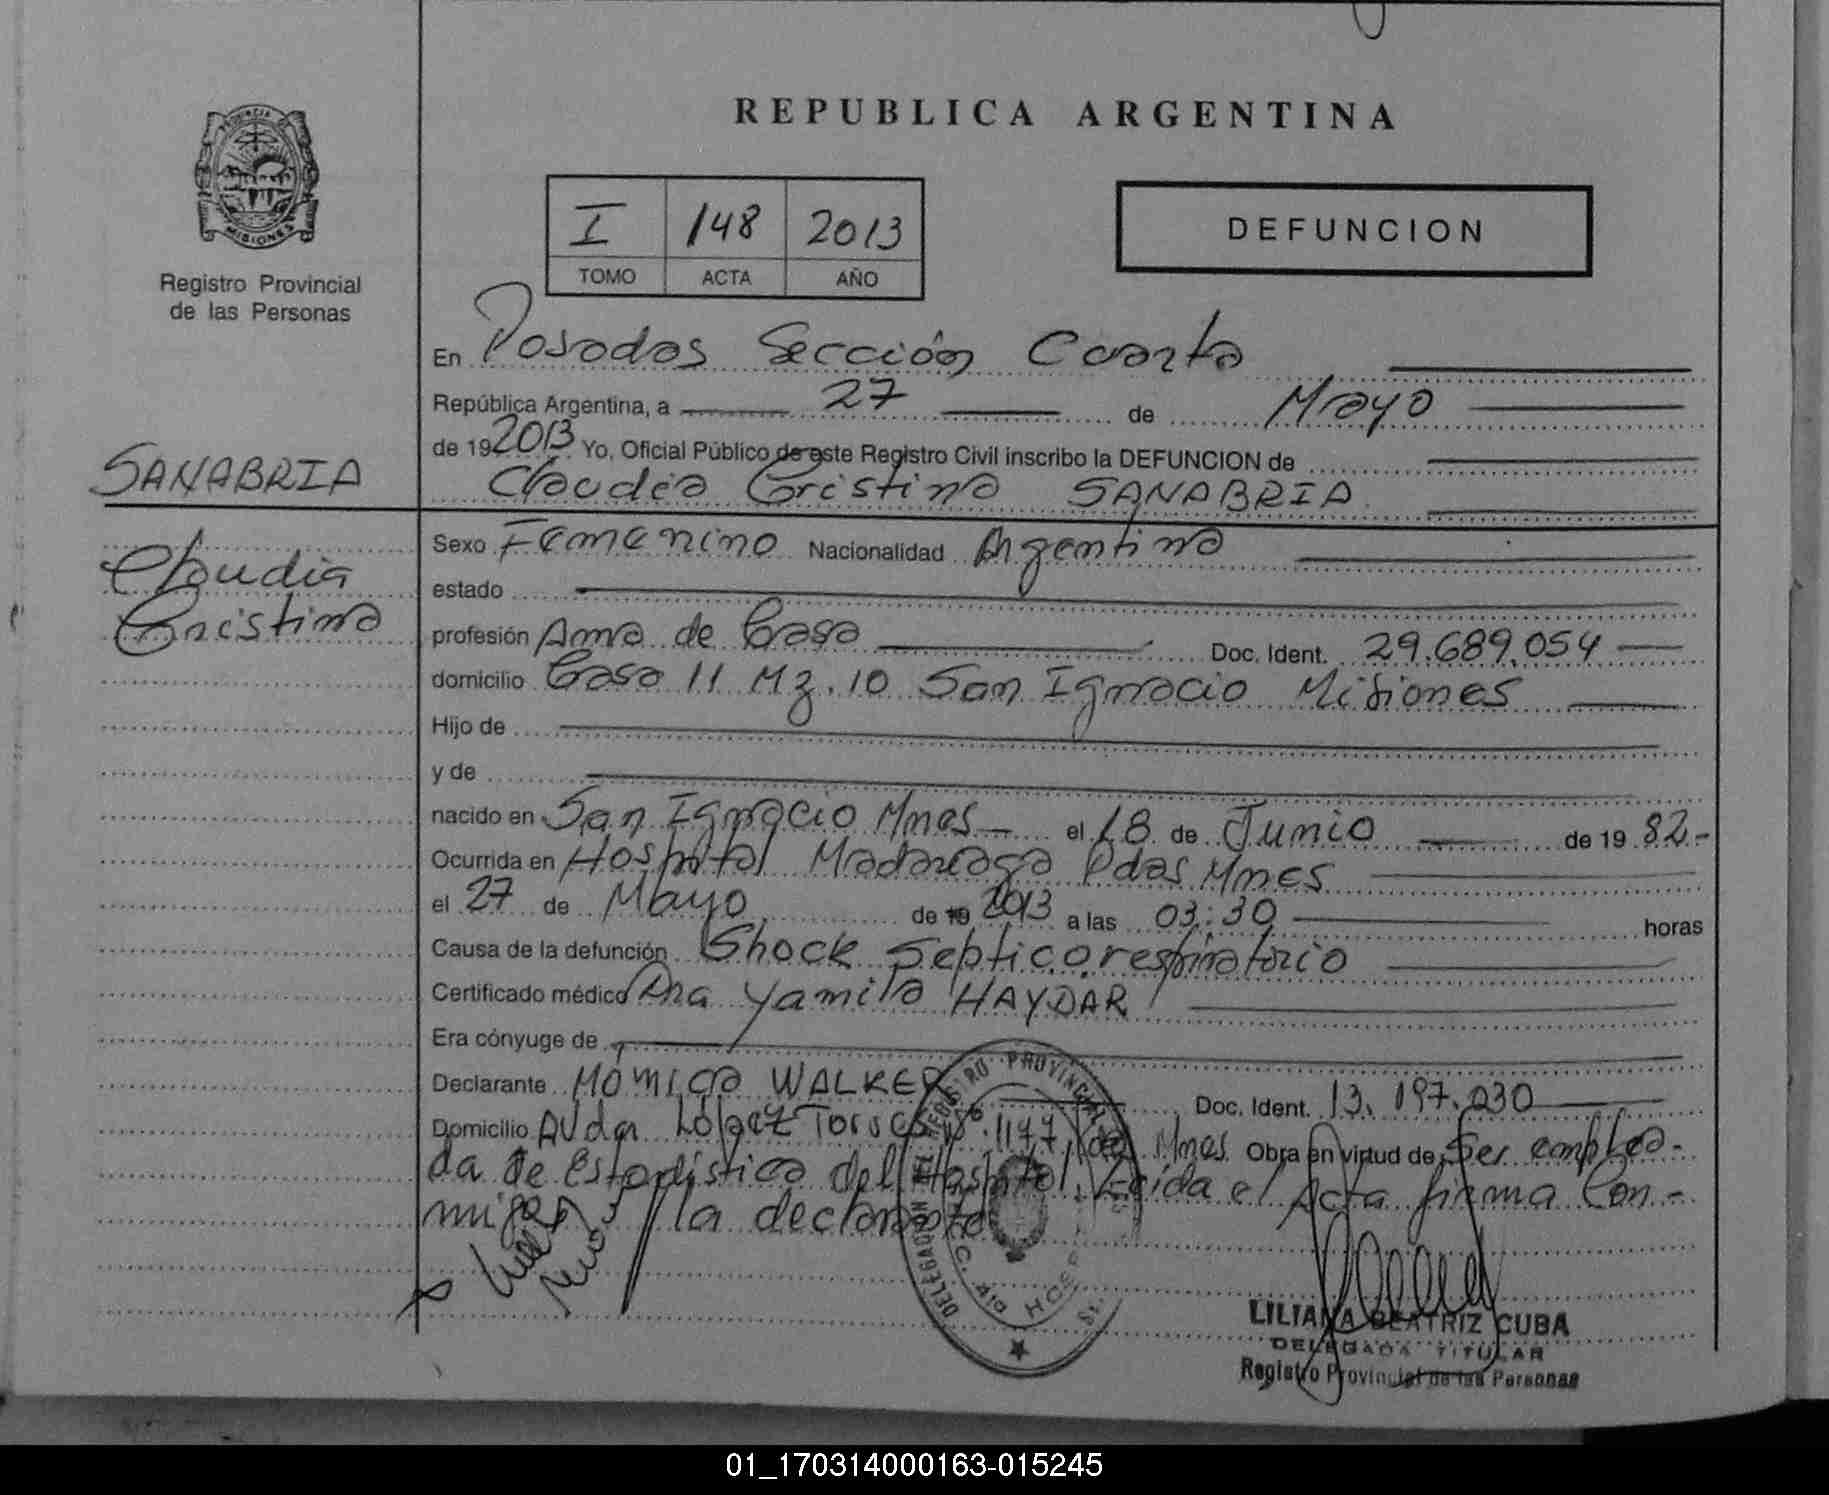 REPUBLICA ARGENTINA
PROVINCIA DE
MISIONES
Registro Provincial
de las Personas
I 148 2013
TOMO ACTA AÑO
DEFUNCION
En Posadas Sección Cuarta
República Argentina, a 27 de Mayo
de 19 2013 Yo, Oficial Público de este Registro Civil inscribo la DEFUNCION de
SANABRIA
Claudia Cristina SANABRIA
Claudia
Cristina
Sexo Femenino Nacionalidad Argentina
estado
profesión Ama de Casa Doc. Ident. 29.689.054
domicilio Casa 11 Mz. 10 San Ignacio Misiones
Hijo de
y de
nacido en San Ignacio Mnes el 18 de Junio de 19 82.-
Ocurrida en Hospital Madariaga Pdas Mnes
el 27 de Mayo de 19 2013 a las 03:30 horas
Causa de la defunción Shock Septico respiratorio
Certificado médico Dra Yamila HAYDAR
Era cónyuge de
Declarante Mónica WALKER Doc. Ident. 13.197.030
Domicilio Avda López Torres Nº 1177 Mnes Obra en virtud de Ser emplea-
da de Estadística del Hospital Leída el Acta firma Con-
migo la declarante
REGISTRO PROVINCIAL
LILIANA BEATRIZ CUBA
DELEGADA TITULAR
Registro Provincial de las Personas
01_170314000163-015245